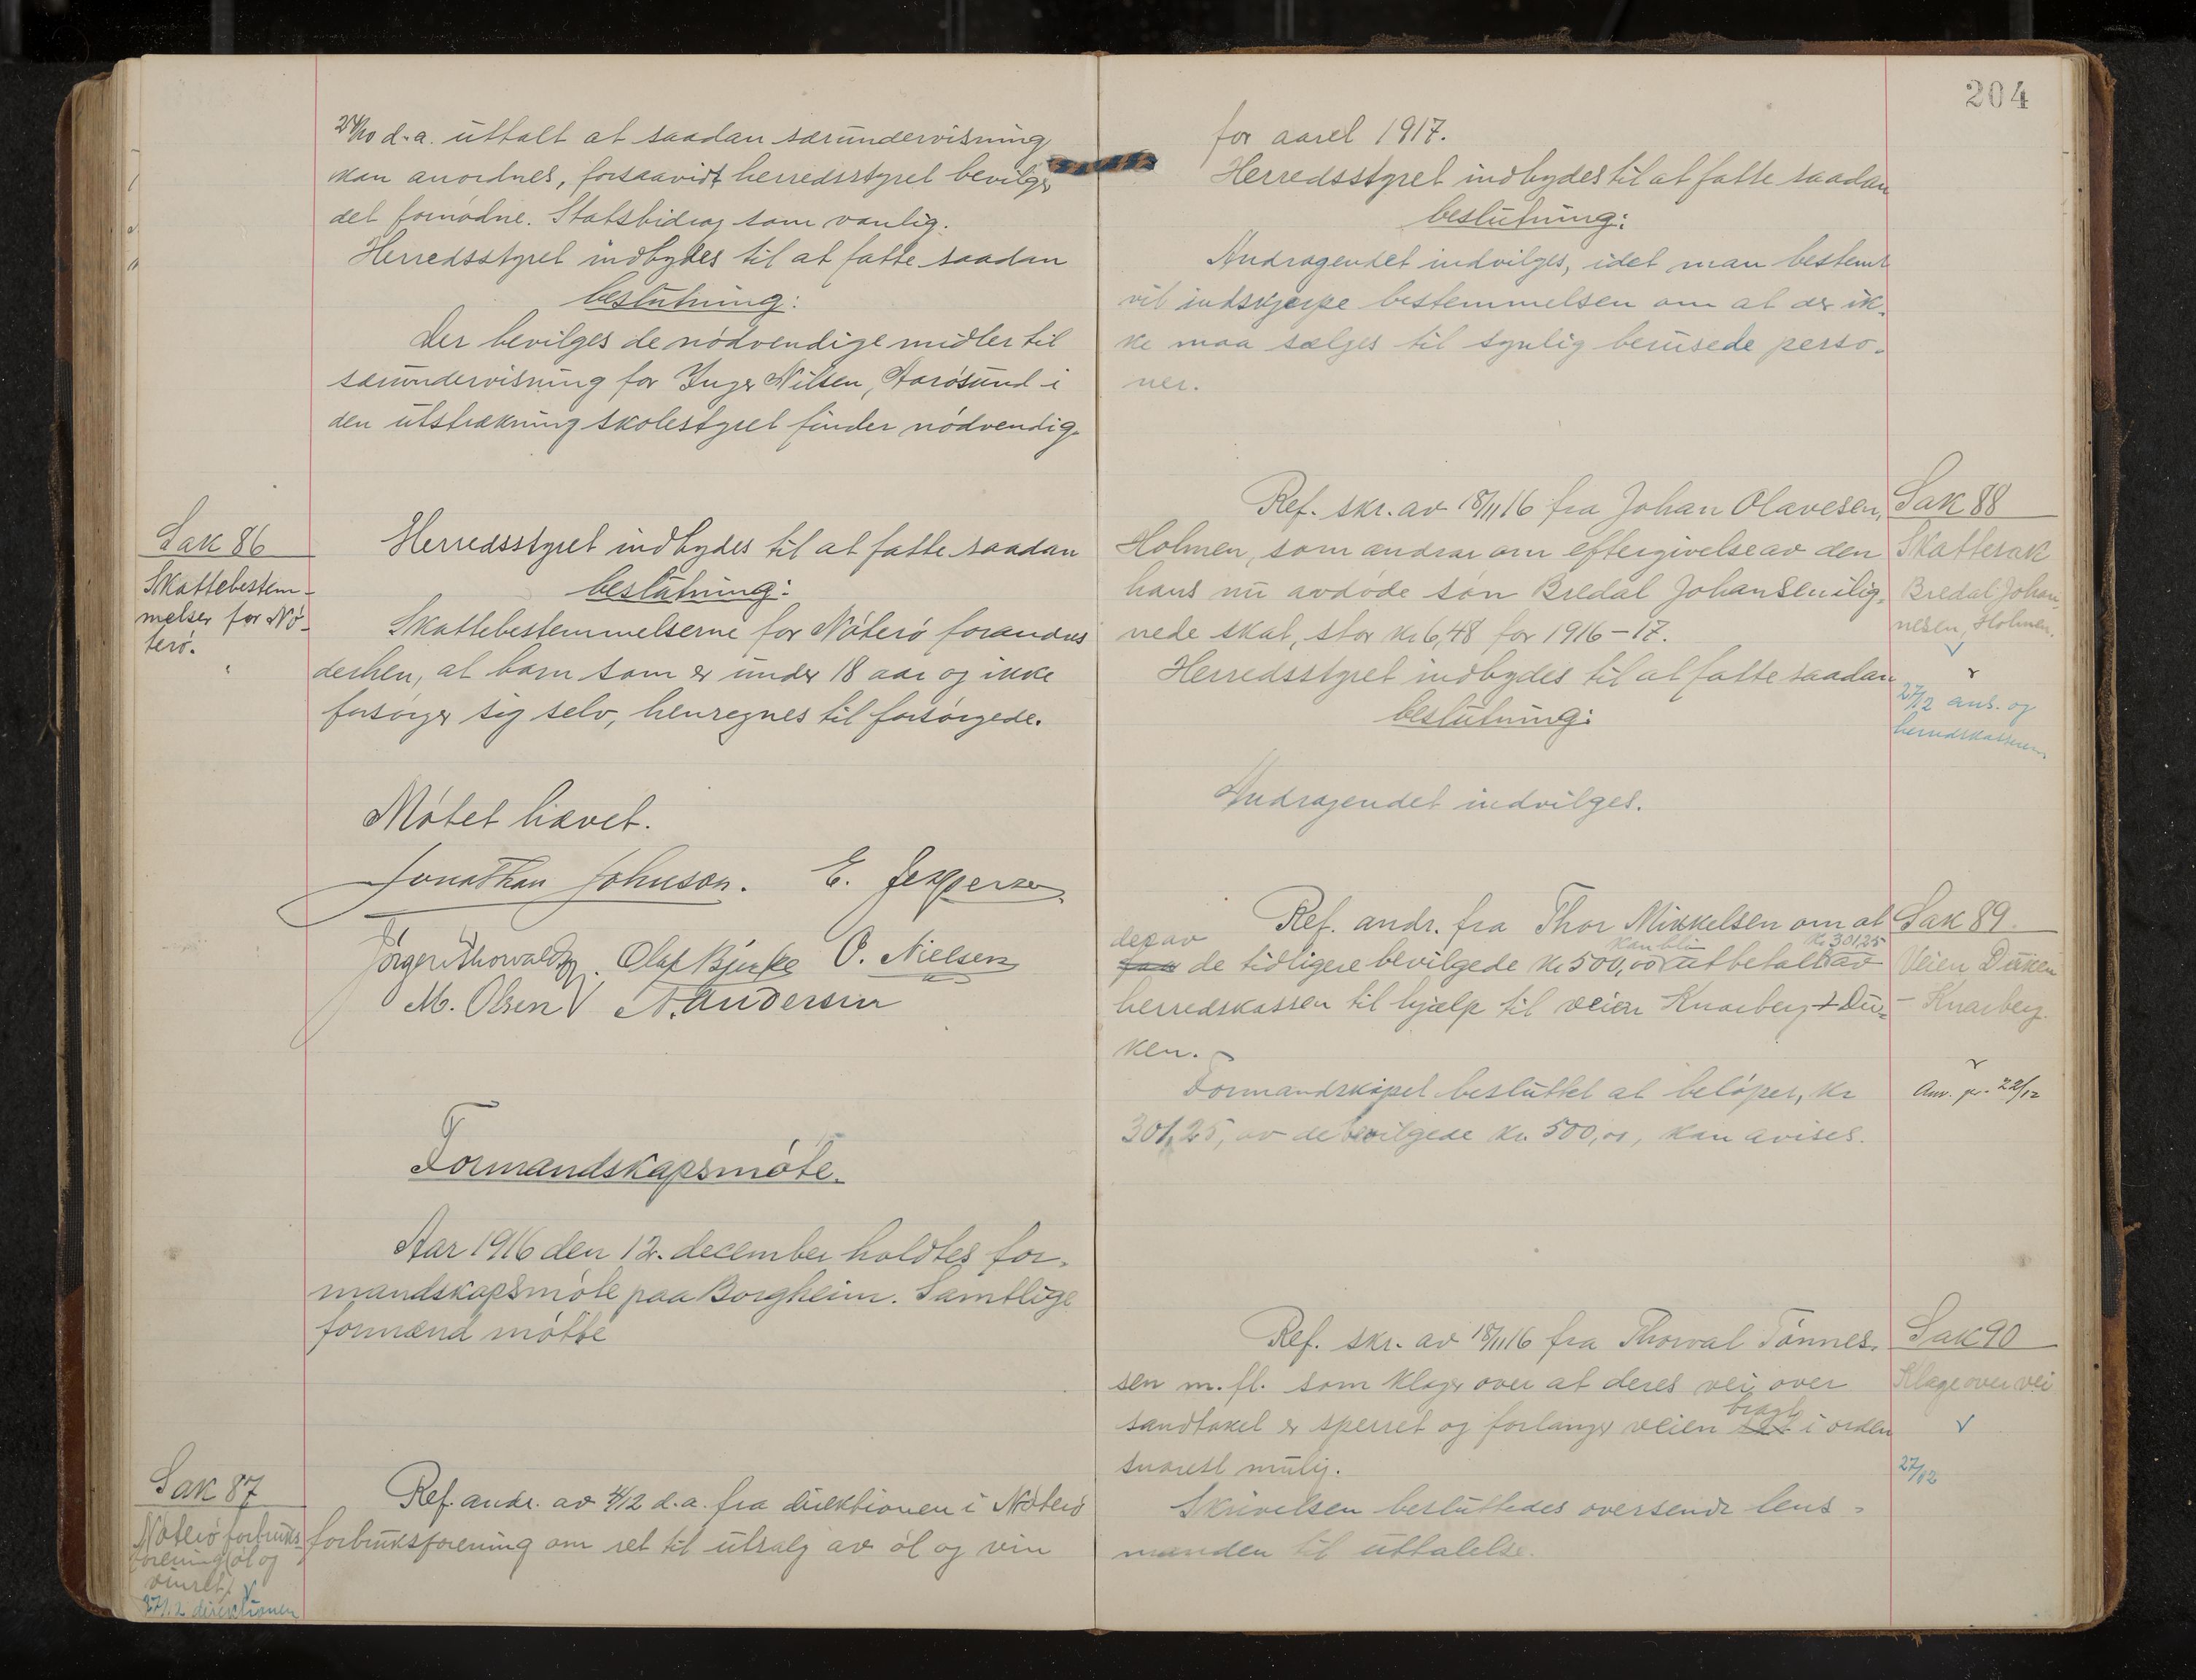 d.a. uttalt at saadan særundervisning
kan anordnes, forsaavidt herredsstyret bevilger
det fornødne. Statsbidrag som vanlig.
Herredsstyret indbydes til at fatte saadan
beslutning:
Der bevilges de nødvendige midler til
særundervisning for Inger Nilsen, Aarøsund i
den utstrækning skolestyret finder nødvendig.
Sak 86
Skattebestem-
melser for Nø-
terø.
Herredsstyret indbydes til at fatte saadan
beslutning:
Skattebestemmelserne for Nøterø forandres
derhen, at barn som er under 18 aar og ikke
forsørger sig selv, henregnes til forsørgede.
Møtet hævet.
Jonathan Johnson. E. Jespersen
Jørgen Thorvaldsen. Olaf Bjerke O. Nielsen
M. Olsen N. Andersen
Formandskapsmøte.
Aar 1916 den 12. december holdtes for-
mandskapsmøte paa Borgheim. Samtlige
formænd møtte
Sak 87
Nøterø forbruks-
forening (øl og
vinret)
27/12 direktionen
Ref. andr. av 4/12 d.a. fra direktionen i Nøterø
forbruksforening om ret til utsalg av øl og vin
204
for aaret 1917.
Herredsstyret indbydes til at fatte saadan
beslutning:
Andragendet indvilges, idet man bestemt
vil indskjerpe bestemmelsen om at der ik-
ke maa sælges til synlig berusede perso-
ner.
Sak 88
Skattesak
Bredal Johan-
nesen, Holmen.
27/12 anv. og
herredskasseren
Ref. skr. av 18/11 16 fra Johan Olavesen,
Holmen, som andrar om eftergivelse av den
hans nu avdøde søn Bredal Johansen ilig-
nede skat, stor kr 6,48 for 1916-17.
Herredsstyret indbydes til at fatte saadan
beslutning:
Andragendet indvilges.
Sak 89.
Veien Duken
- Knarberg.
Anv. pr. 22/12
Ref. andr. fra Thor Mikkelsen om at
derav kan bli kr 301,25
faa de tidligere bevilgede kr 500,00 utbetalt av
herredskassen til hjælp til veien Knarberg + Du-
ken.
Formandskapet besluttet at beløpet, kr
301,25, av de bevilgede kr. 500,00, kan avises.
Sak 90
Klage over vei
27/12
Ref. skr. av 18/11 16 fra Thorval Tønnes-
sen m. fl. som klager over at deres vei over
sandtaket er sperret og forlanger veien bragt i orden
snarest mulig.
Skrivelsen besluttedes oversendt lens-
manden til uttalelse.